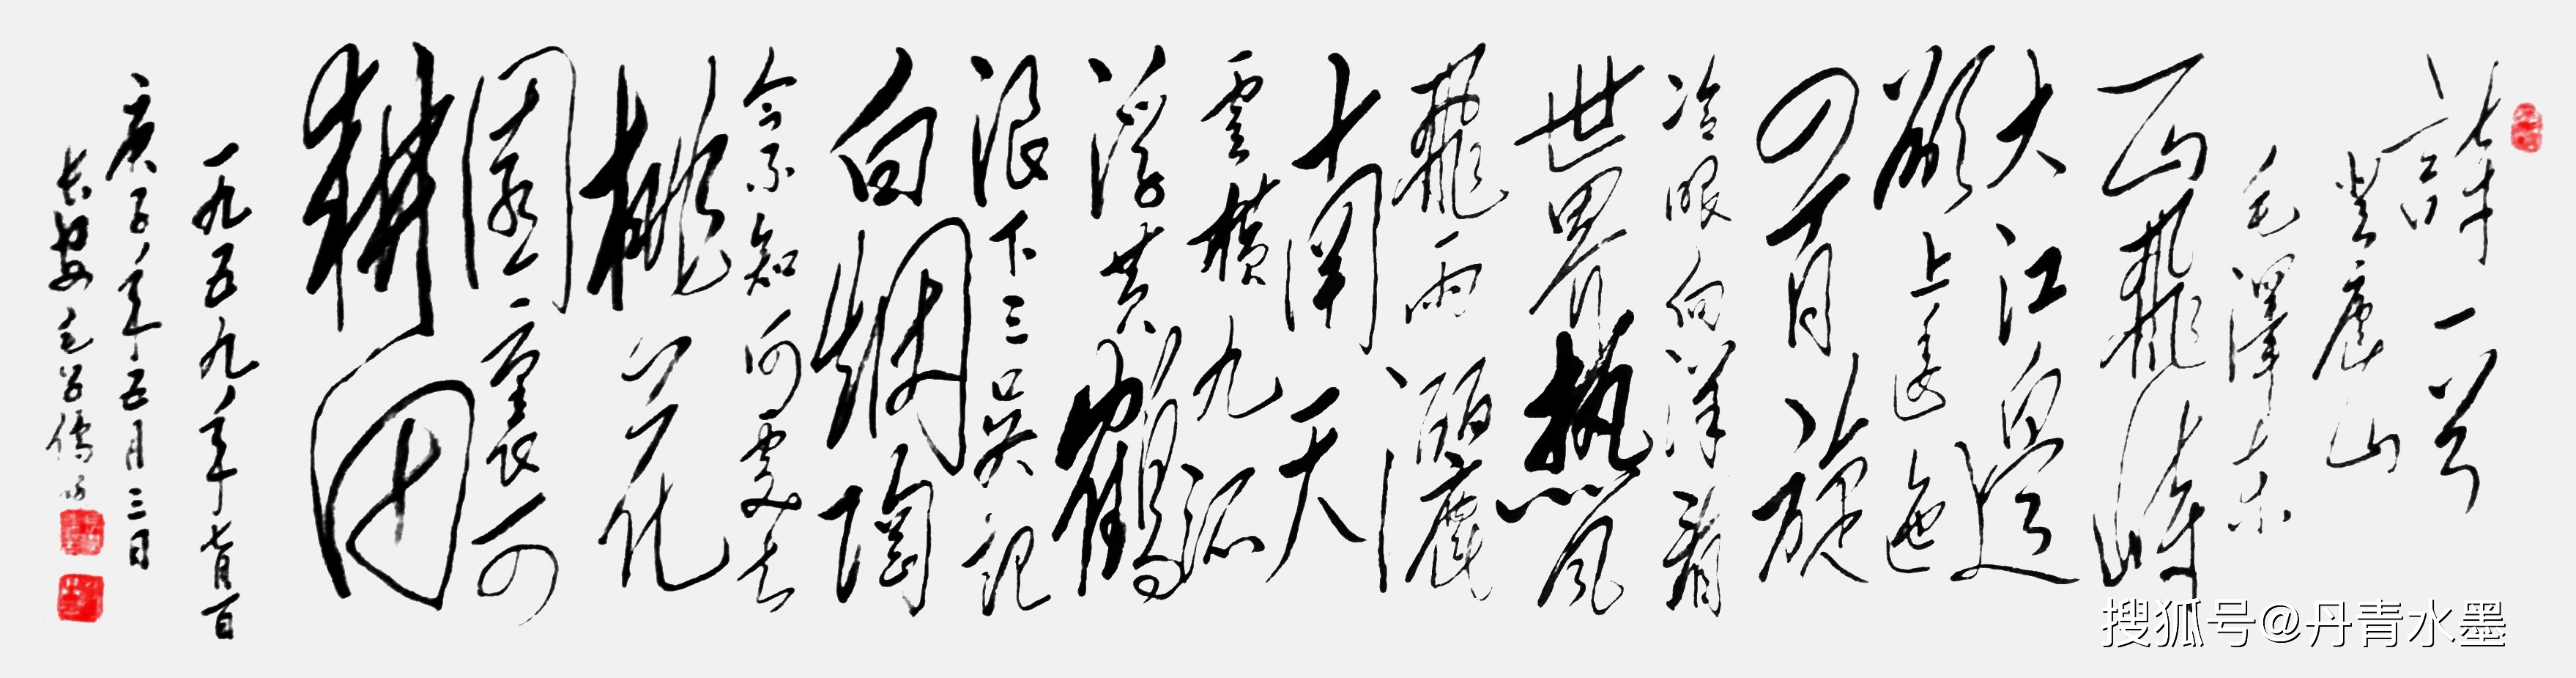 詩一首
登廬山
毛澤東
一山飛峙
大江邊
欲上逶迤
四百旋
冷眼向洋看
世界熱風
飛雨灑
南天
雲橫九派
浮黃鶴
浪下三吳起
白烟陶
令不知何處去
桃花
園裏可
耕田
一九五九年七月一日
庚子年五月三日
長安毛
搜狐号@丹青水墨